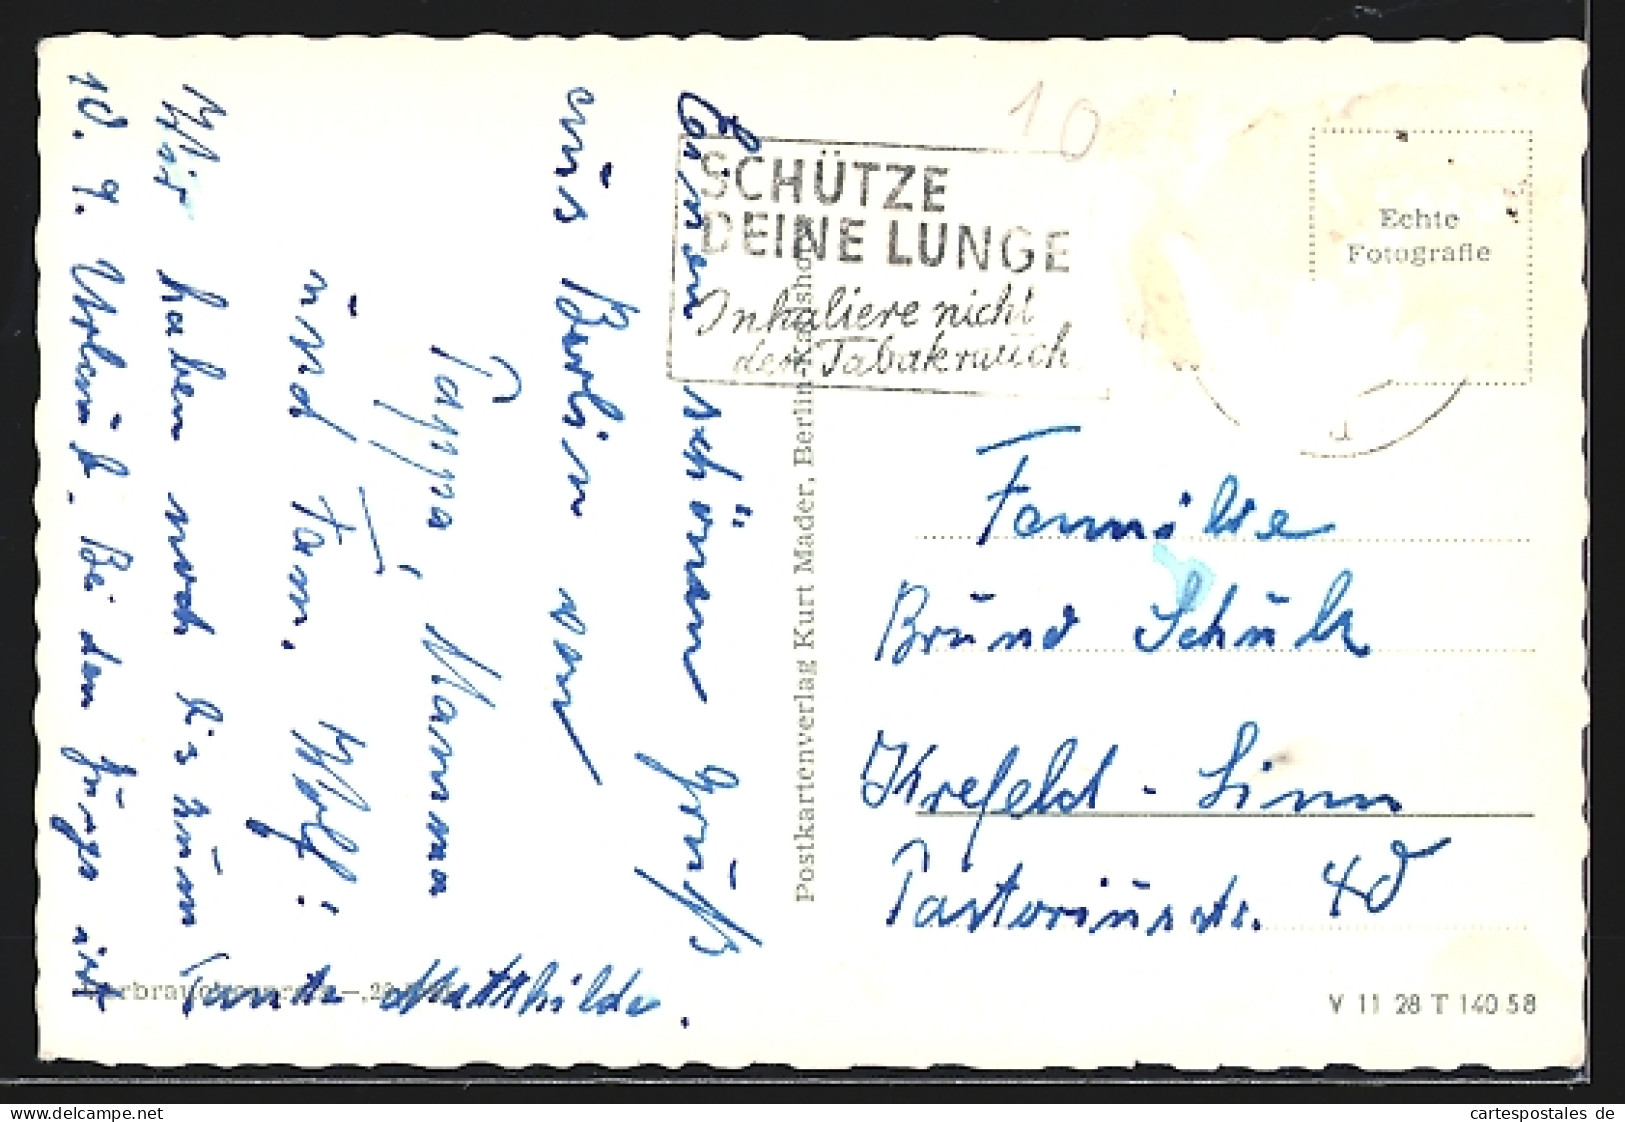 Einen schönen Gruß
aus Berlin von
Pappa, Mamma
und Fam. Wolf!
Wir haben noch bis zum
10. 9. Urlaub. Bei dem Jürgo ist
Tante Matthilde.
10
SCHÜTZE
DEINE LUNGE
Inhaliere nicht
den Tabakrauch
Echte
Fotografie
Postkartenverlag Kurt Mader, Berlin-Kaulshorf
Familie
Bruno Schulz
Krefeld - Linn
Pastoriusstr. 40
V 11 28 T 140 58
www.delcampe.net
cartespostales de